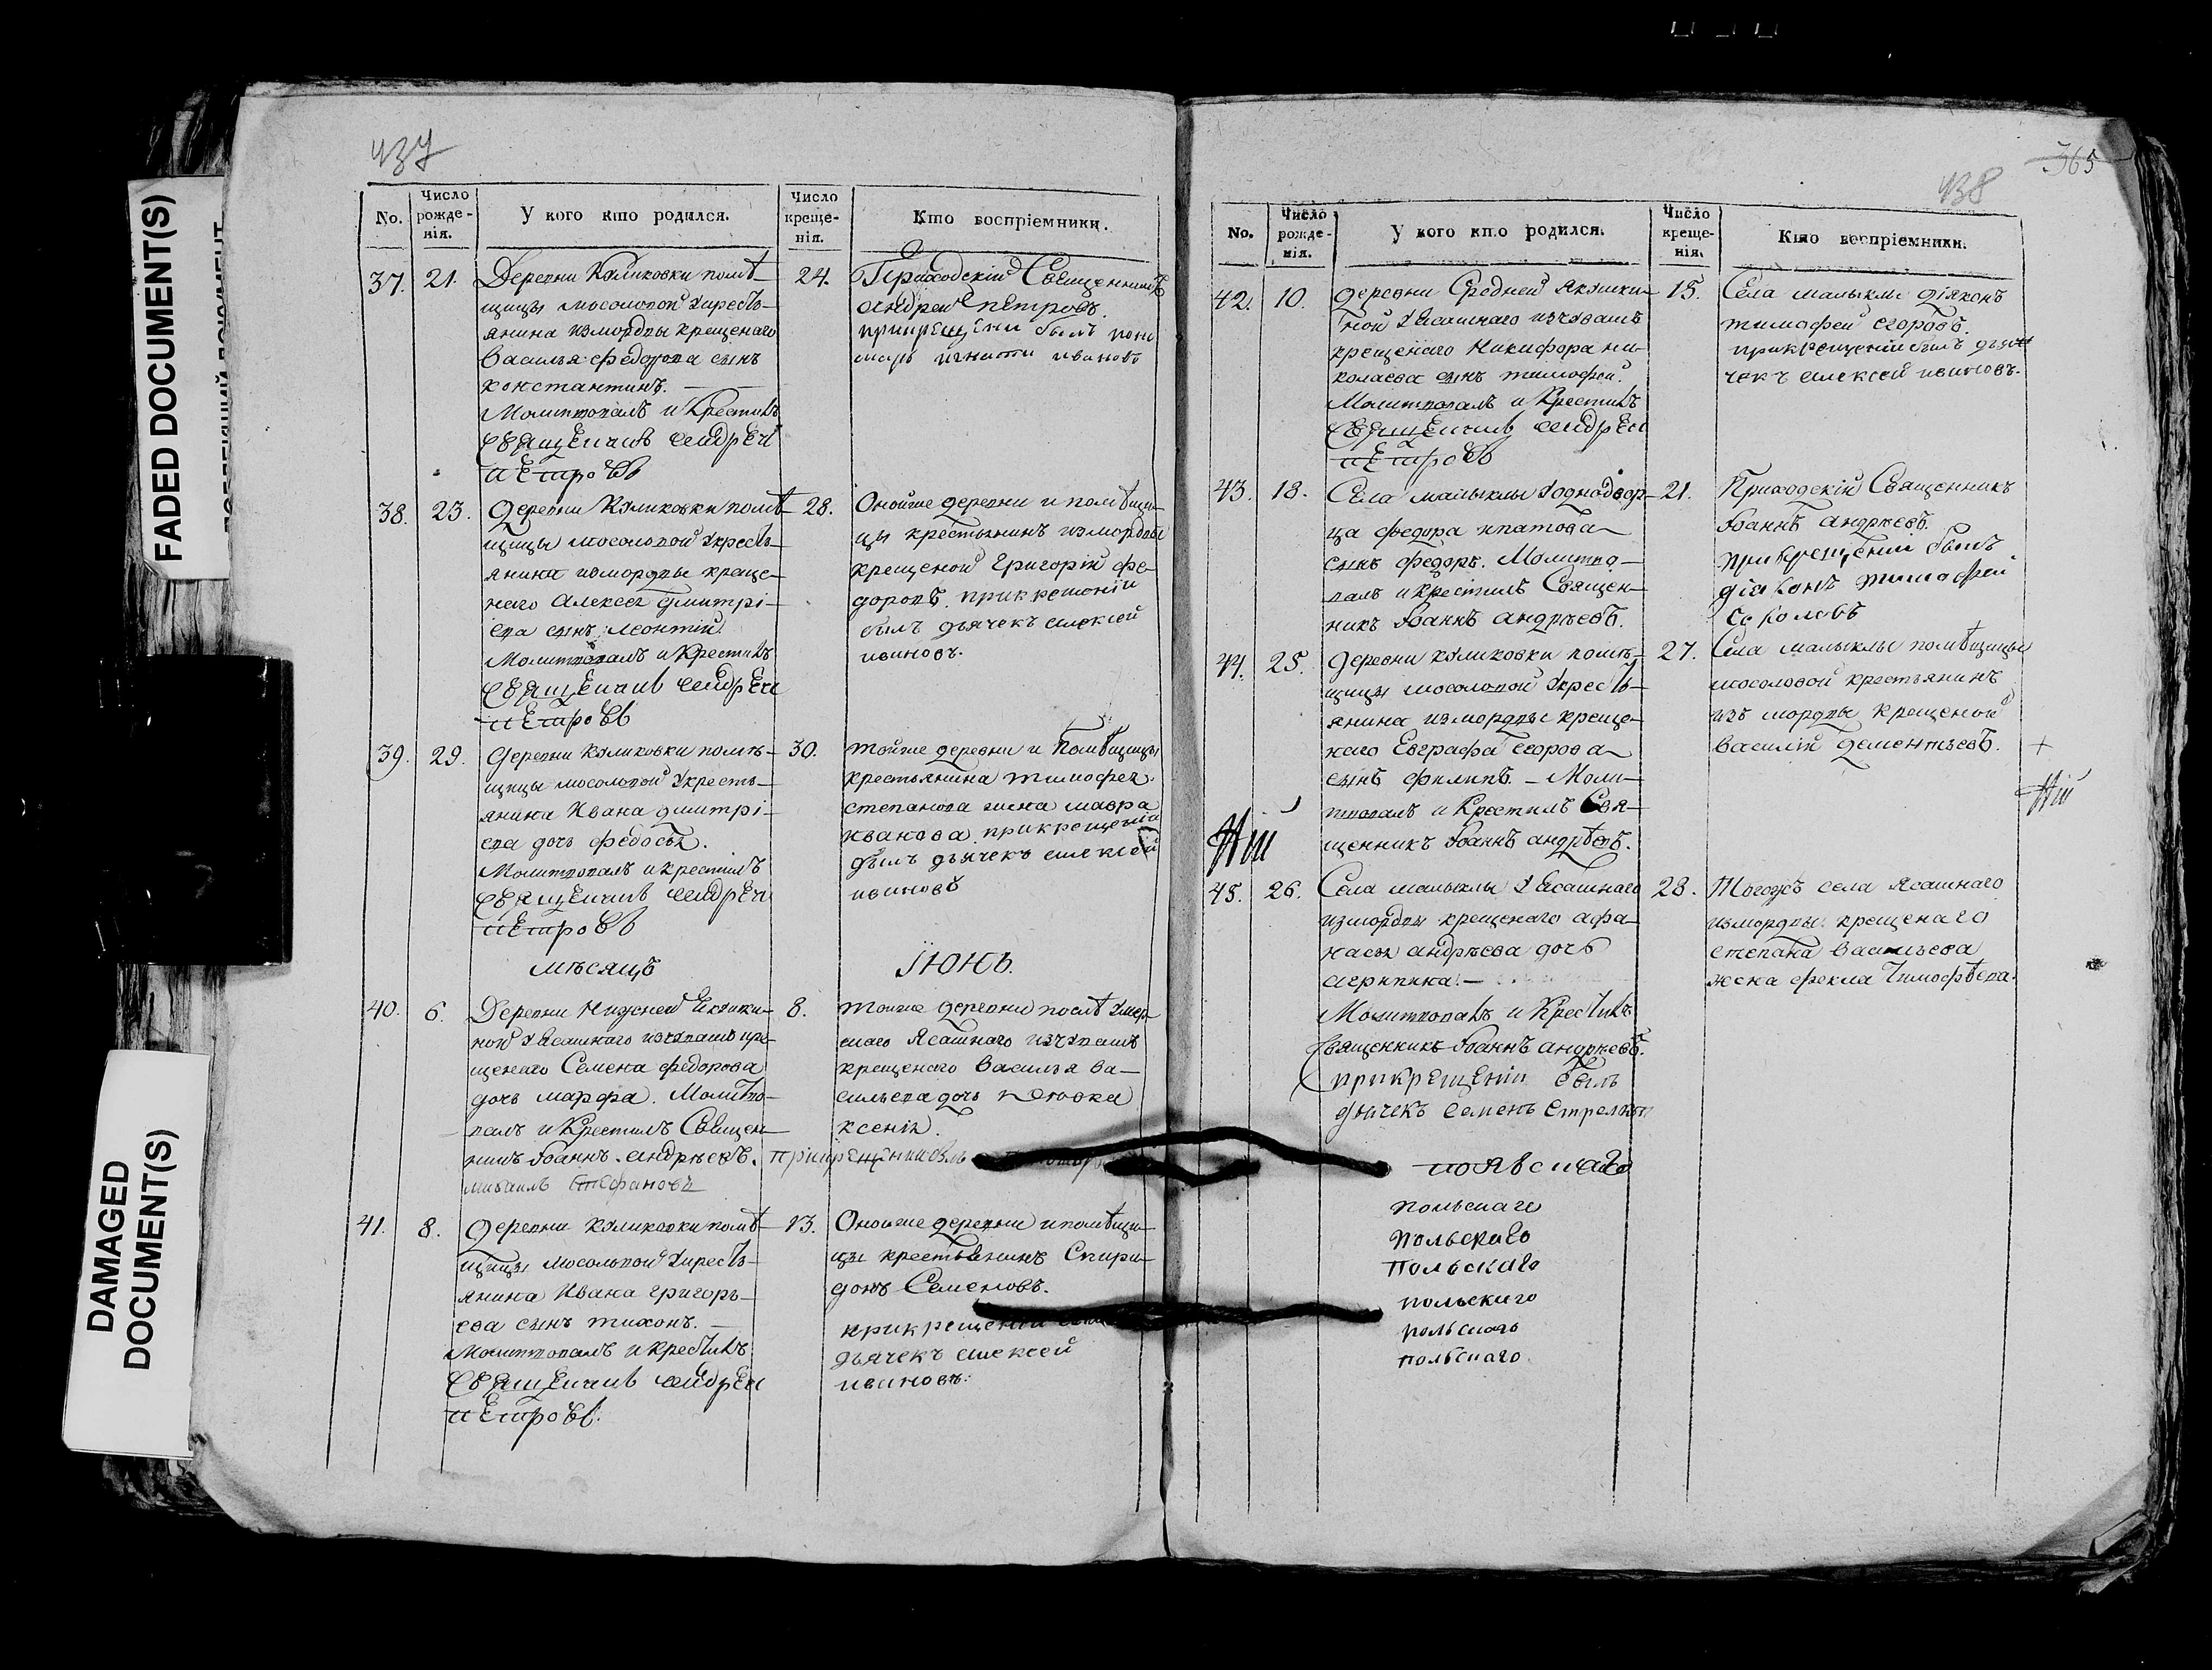 FADED DOCUMENT(S)
DAMAGED
DOCUMENT(S)
437
No.
Число
рожде-
нія.
У кого кто родился.
Число
креще-
нія.
Кто воспріемники.
37. 21.
Деревни Куликовки помѣ-
щицы мосоловой у кресть-
янина из мордвы крещенаго
Василья федорова сынъ
константинъ. —
Молитвовалъ и Крестилъ
священникъ андрей
петровъ
24.
Приходскій Священникъ
андрей петровъ.
прикрещени былъ поно
марь игнати ивановъ
38. 23.
Деревни Куликовки помѣ-
щицы мосоловой у кресть-
янина измордвы креще-
наго Алексея дмитрі-
ева сынъ леонтій.
Молитвовалъ и Крестилъ
священникъ андрей
петровъ
28.
Оной же деревни и помѣщи-
цы крестьянинъ измордвы
крещеной Григорій фе-
доровъ. прикрещеніи
былъ дьячекъ алексей
ивановъ.
39. 29.
Деревни Куликовки помѣ-
щицы мосоловой у кресть-
янина Ивана дмитрі-
ева дочь федосья.
Молитвовалъ и крестилъ
священникъ андрей
петровъ
30.
тойже деревни и помѣщицы
крестьянина тимофея
степанова жена мавра
иванова. прикрещеніи
былъ дьячекъ алексей
ивановъ
мѣсяцъ
Іюнь.
40. 6.
Деревни Нижней Якушки-
ной у Ясашнаго изчувашъ кре-
щенаго Семена федорова
дочь марфа. Молитво-
валъ и Крестилъ Священ-
никъ Іоаннъ андреевъ. прикрещеніи былъ
михаилъ Стефановъ
8.
тойже деревни послѣ умер-
шаго Ясашнаго изчувашъ
крещенаго Василья ва-
сильева дочь девка
ксенія.
41. 8.
Деревни Куликовки помѣ-
щицы мосоловой у кресть-
янина Ивана григорь-
ева сынъ тихонъ. —
Молитвовалъ и крестилъ
священникъ андрей
петровъ.
13.
Оной же деревни и помѣщи-
цы крестьянинъ Спири-
донъ Семеновъ.
прикрещеніи былъ
дьячекъ алексей
ивановъ.
365
438
No.
Число
рожде-
нія.
У кого кто родился.
Число
креще-
нія.
Кто воспріемники.
42. 10.
деревни Средней Якушки-
ной у Ясашнаго изчувашъ
крещенаго Никифора ни-
колаева сынъ тимофей.
Молитвовалъ и Крестилъ
священникъ андрей
петровъ
15.
Села малыклы діяконъ
тимофей егоровъ.
прикрещеніи былъ дья
чекъ алексей ивановъ.
43. 18.
Села малыклы у однодвор-
ца федора ипатова
сынъ федоръ. Молитво-
валъ и крестилъ Священ-
никъ Іоаннъ андреевъ.
21.
Приходскій Священникъ
Іоаннъ андреевъ.
прикрещеніи былъ
діяконъ тимофей
соколовъ
44. 25.
деревни куликовки помѣ-
щицы мосоловой у кресть-
янина измордвы креще-
наго Евграфа Егорова
сынъ филипъ. — Моли-
твовалъ и Крестилъ Свя-
щенникъ Іоаннъ андреевъ.
27.
Села малыклы помѣщицы
мосоловой крестьянинъ
изъ мордвы крещеной
василій дементьевъ. +
45. 26.
Села малыклы у Ясашнаго
измордвы крещенаго афа-
насья андреева дочь
агрипина. —
Молитвовалъ и Крестилъ
Священникъ Іоаннъ андреевъ.
прикрещеніи былъ
дьячекъ семенъ
28.
Тогожъ села Ясашнаго
измордвы крещенаго
степана васильева
жена фекла тимофѣева.
польскаго
польскаго
польскаго
польскаго
польскаго
польскаго